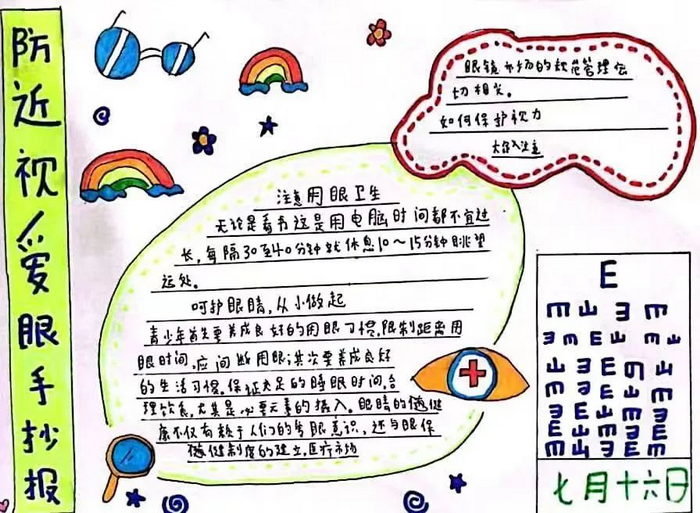 防近视爱眼手抄报
眼镜市场的规范管理密
切相关。
如何保护视力
注意用眼卫生
无论是看书还是用电脑时间都不宜过
长,每隔30至40分钟就休息10~15分钟眺望
远处。
呵护眼睛,从小做起
青少年首先要养成良好的用眼习惯,限制距离用
眼时间,应间断用眼;其次要养成良好
的生活习惯。保证充足的睡眠时间,合
理饮食,尤其是必要元素的摄入。眼睛的健
康不仅有赖于人们的爱眼意识,还与眼保
健制度的建立,医疗市场
E
七月十六日